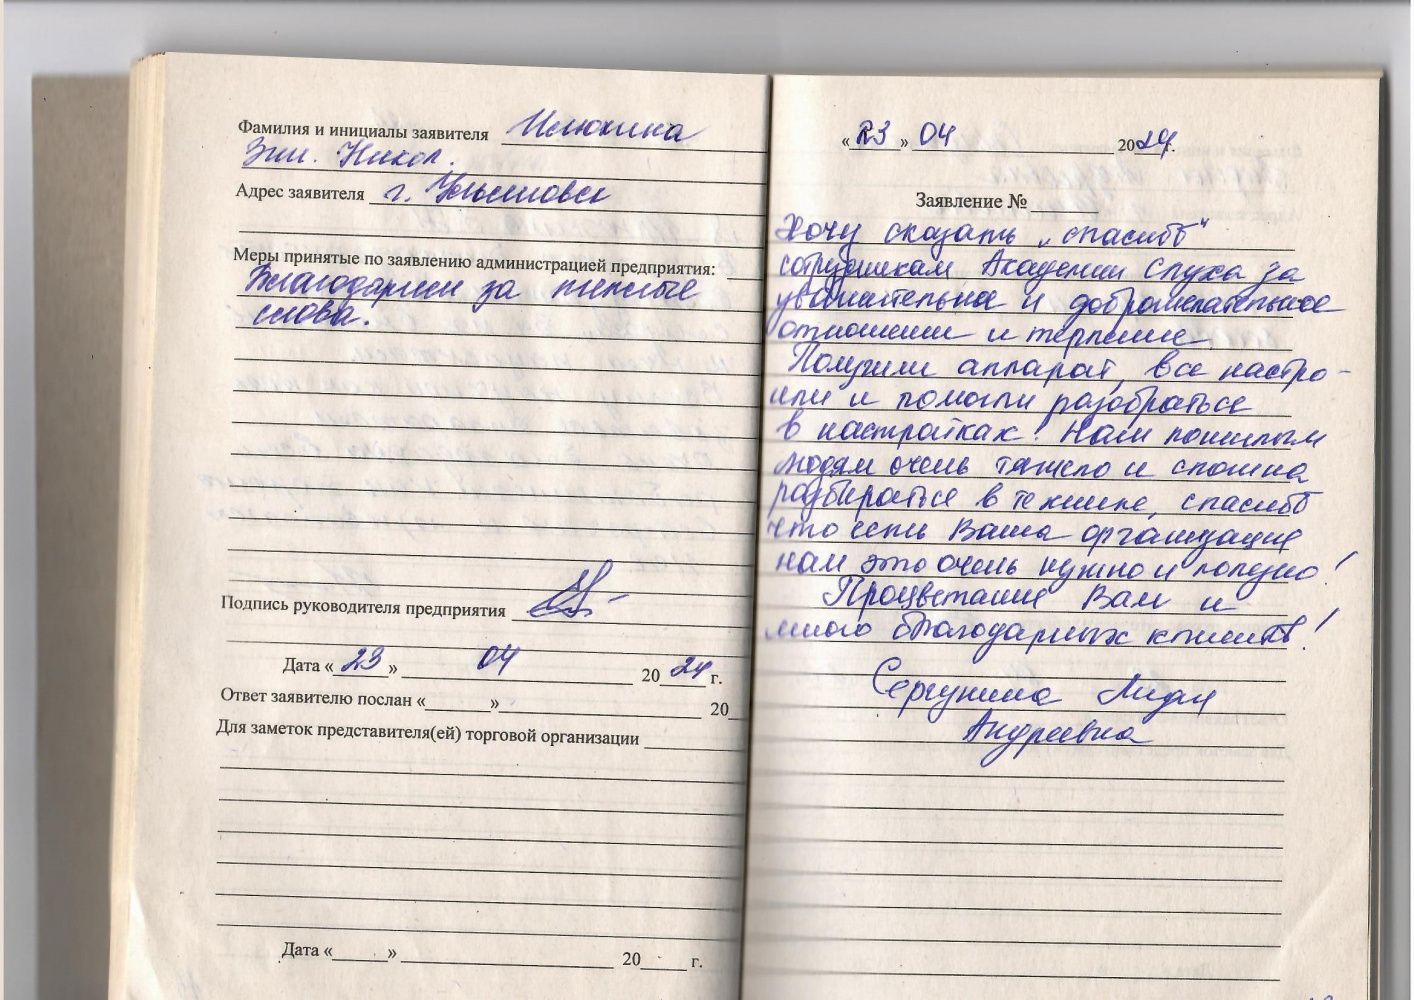 Фамилия и инициалы заявителя Илюхина
Зин. Никол.
Адрес заявителя г. Ульяновск
Меры принятые по заявлению администрацией предприятия:
Благодарим за теплые
слова.
Подпись руководителя предприятия
Дата «23» 04 2024 г.
Ответ заявителю послан «  » 20
Для заметок представителя(ей) торговой организации
Дата «  » 20 г.
«23» 04 2024г.
Заявление №
Хочу сказать „спасибо“
сотрудникам Академии Слуха за
уважительное и доброжелательное
отношение и терпение
Получили аппарат, все настро-
или и помогли разобраться
в настройках! Нам пожилым
людям очень тяжело и сложно
разбираться в технике, спасибо
что есть Ваша организация
нам это очень нужно и полезно!
Процветания Вам и
много благодарных клиентов!
Сергунина Лидия
Андреевна